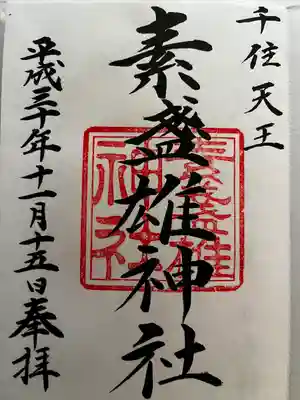 千住天王
素盞雄神社
素盞雄
神社
平成三十年十一月十五日奉拝